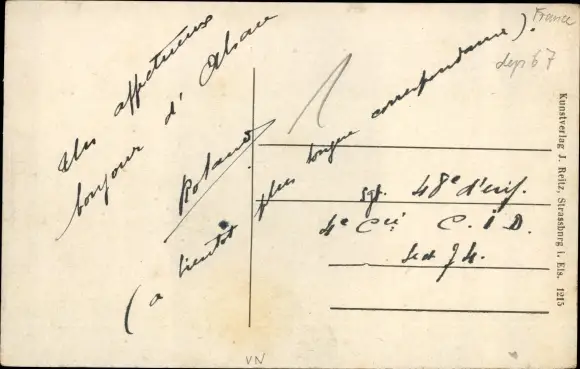 Un affectueux
bonjour d'Alsace
Roland
(a bientot plus longue correspondance).
France
dep 67
Sgt. 48e d'inf.
4e Cie C. I D.
Sect 74.
Kunstverlag J. Reitz, Strassburg i. Els. 1215
VN
1